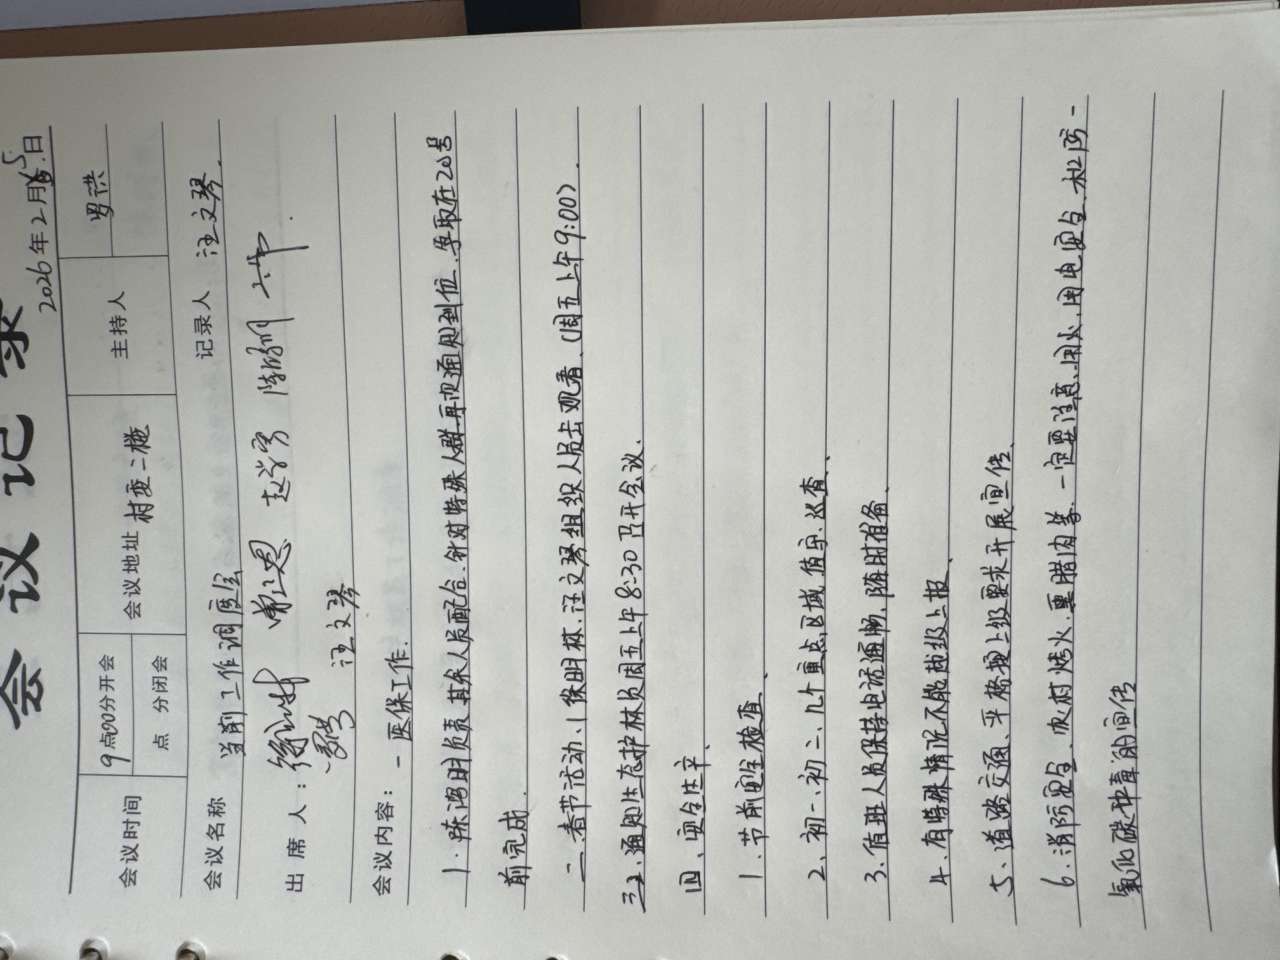 会议记录
2026年2月5日
会议时间 9点00分开会 会议地址 村委二楼 主持人 罗洪
点 分闭会
会议名称 当前工作调度会 记录人 汪文琴
出席人： 陈鸿明
汪文琴
会议内容：一 医保工作.
1. 陈鸿明负责 其余人员配合.针对特殊人群再次通知到位.争取在20号
前完成.
二.春节活动、(徐明林.汪文琴组织人员去观看、(周五上午9:00)
三、通知生态护林员周五上午8:30召开会议.
四、安全生产、
1.节前安全检查、
2、初一、初二、几个重点区域值守、巡查、
3.值班人员保持电话通畅,随时准备、
4.有特殊情况不能越级上报、
5、道路交通、严格按上级要求开展宣传、
6.消防安全、农村烤火.熏腊肉等.一定要注意、用火.用电安全.和防一
氧化碳钟毒的宣传